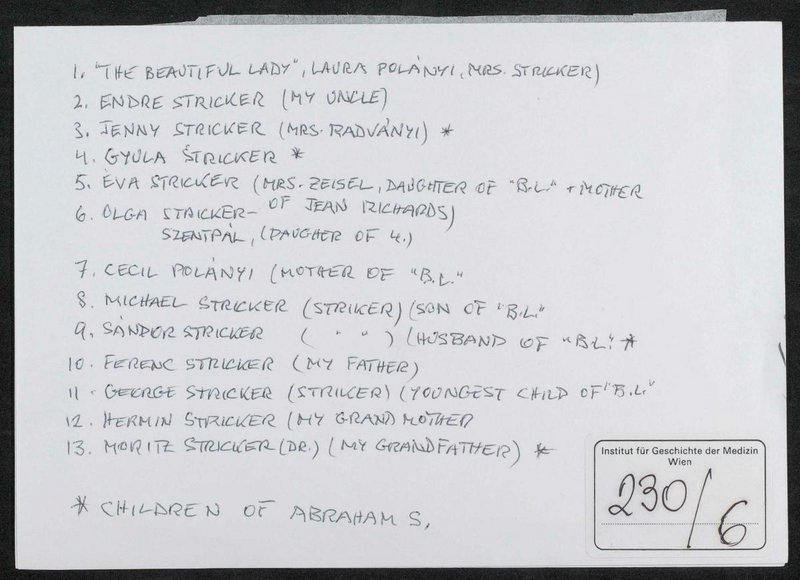 1. "THE BEAUTIFUL LADY", LAURA POLÁNYI, MRS. STRICKER)
2. ENDRE STRICKER (MY UNCLE)
3. JENNY STRICKER (MRS. RADVÁNYI) *
4. GYULA STRICKER *
5. ÉVA STRICKER (MRS. ZEISEL, DAUGHTER OF "B.L." + MOTHER
OF JEAN RICHARDS)
6. OLGA STRICKER-
SZENTPÁL, (DAUGHER OF 4.)
7. CECIL POLÁNYI (MOTHER OF "B.L."
8. MICHAEL STRICKER (STRIKER) (SON OF "B.L."
9. SÁNDOR STRICKER ( " " ) (HUSBAND OF "B.L". *
10. FERENC STRICKER (MY FATHER)
11. GEORGE STRICKER (STRIKER) (YOUNGEST CHILD OF "B.L."
12. HERMIN STRICKER (MY GRAND MOTHER
13. MORITZ STRICKER (DR.) (MY GRANDFATHER) *
* CHILDREN OF ABRAHAM S.
Institut für Geschichte der Medizin
Wien
230/6